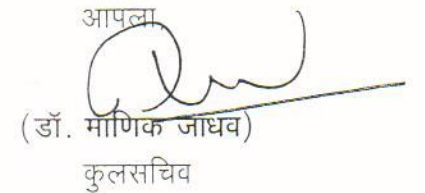 आपला,
(डॉ. माणिक जाधव)
कुलसचिव